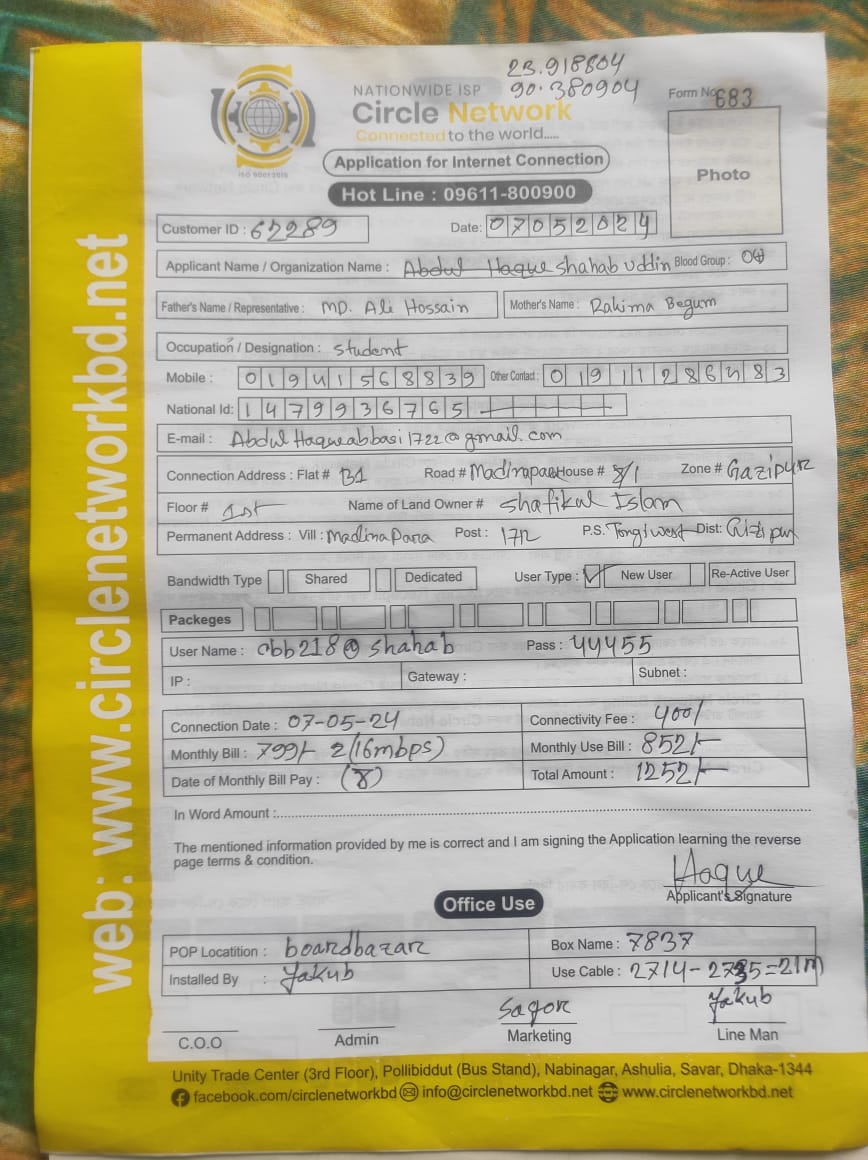 23.918804
90.380904
NATIONWIDE ISP
Circle Network
Connected to the world.....
ISO 9001:2015
Form No 683
Photo
Application for Internet Connection
Hot Line : 09611-800900
Customer ID : 62289 Date: 07052024
Applicant Name / Organization Name : Abdul Haque Shahab Uddin Blood Group :
Father's Name / Representative : MD. Ali Hossain Mother's Name : Rahima Begum
Occupation / Designation : Student
Mobile : 01941568839 Other Contact : 01911286483
National Id: 1479936765
E-mail : AbdulHaqueabbasi1722@gmail.com
Connection Address : Flat # B1 Road # House # 8/1 Zone # Gazipur
Floor # 1st Name of Land Owner # Shafikul Islam
Permanent Address : Vill : Madina Para Post : 1712 P.S. Tongi west Dist:
Bandwidth Type Shared Dedicated User Type : New User Re-Active User
Packeges
User Name : cbb218@shahab Pass : 44455
IP : Gateway : Subnet :
Connection Date : 07-05-24 Connectivity Fee : 400/
Monthly Bill : 799/- 2(16mbps) Monthly Use Bill : 852/-
Date of Monthly Bill Pay : Total Amount : 1252/-
In Word Amount :
The mentioned information provided by me is correct and I am signing the Application learning the reverse
page terms & condition.
Haque
Applicant's Signature
Office Use
POP Locatition : boardbazar Box Name : 7837
Installed By : Yakub Use Cable : 2714-2735=21m
Sagor Yakub
C.O.O Admin Marketing Line Man
Unity Trade Center (3rd Floor), Pollibiddut (Bus Stand), Nabinagar, Ashulia, Savar, Dhaka-1344
facebook.com/circlenetworkbd info@circlenetworkbd.net www.circlenetworkbd.net
web: www.circlenetworkbd.net